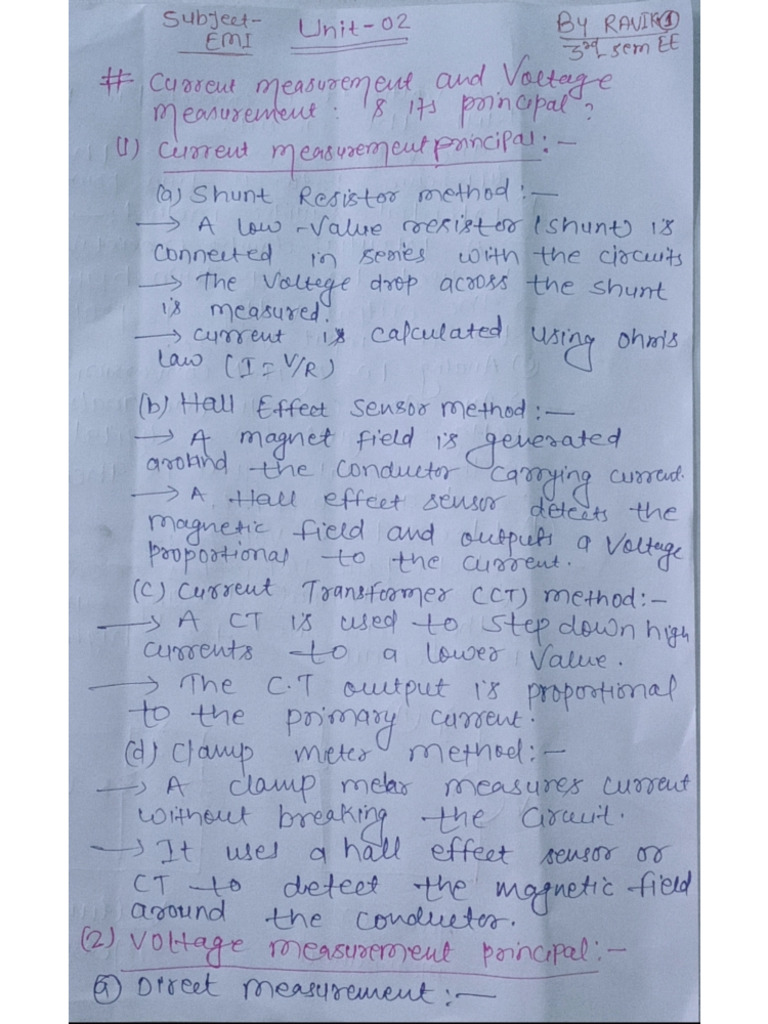 Subject- Unit-02 By RAVI K ①
EMI 3rd sem EE
# Current measurement and Voltage
measurement: & its principal?
(1) Current measurement principal:-
(a) Shunt Resistor method:-
→ A low-value resistor (shunt) is
connected in series with the circuits
→ The Voltege drop across the shunt
is measured.
→ current is calculated using ohm's
law (I = V/R)
(b) Hall Effect sensor method:-
→ A magnet field is generated
around the conductor carrying current.
→ A Hall effect sensor detects the
magnetic field and outputs a voltage
proportional to the current.
(c) Current Transformer (CT) method:-
→ A CT is used to step down high
currents to a lower value.
→ The C.T output is proportional
to the primary current.
(d) Clamp meter method:-
→ A clamp meter measures current
without breaking the circuit.
→ It uses a hall effect sensor or
CT to detect the magnetic field
around the conductor.
(2) Voltage measurement principal:-
(a) Direct measurement:-